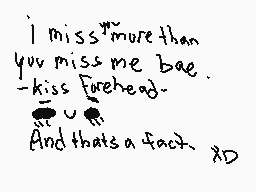 i miss you more than
you miss me bae.
-kiss forehead-
And thats a fact. XD